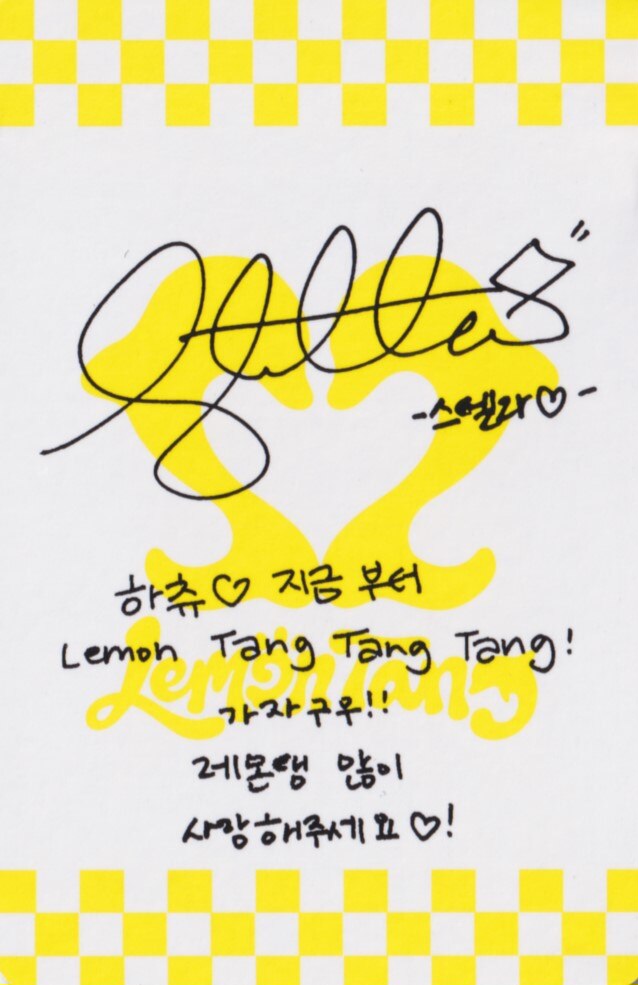 Stella
-스텔라♡-
하츄♡ 지금부터
Lemon Tang Tang Tang!
가자구우!!
레몬탱 많이
사랑해주세요♡!
Lemon Tang